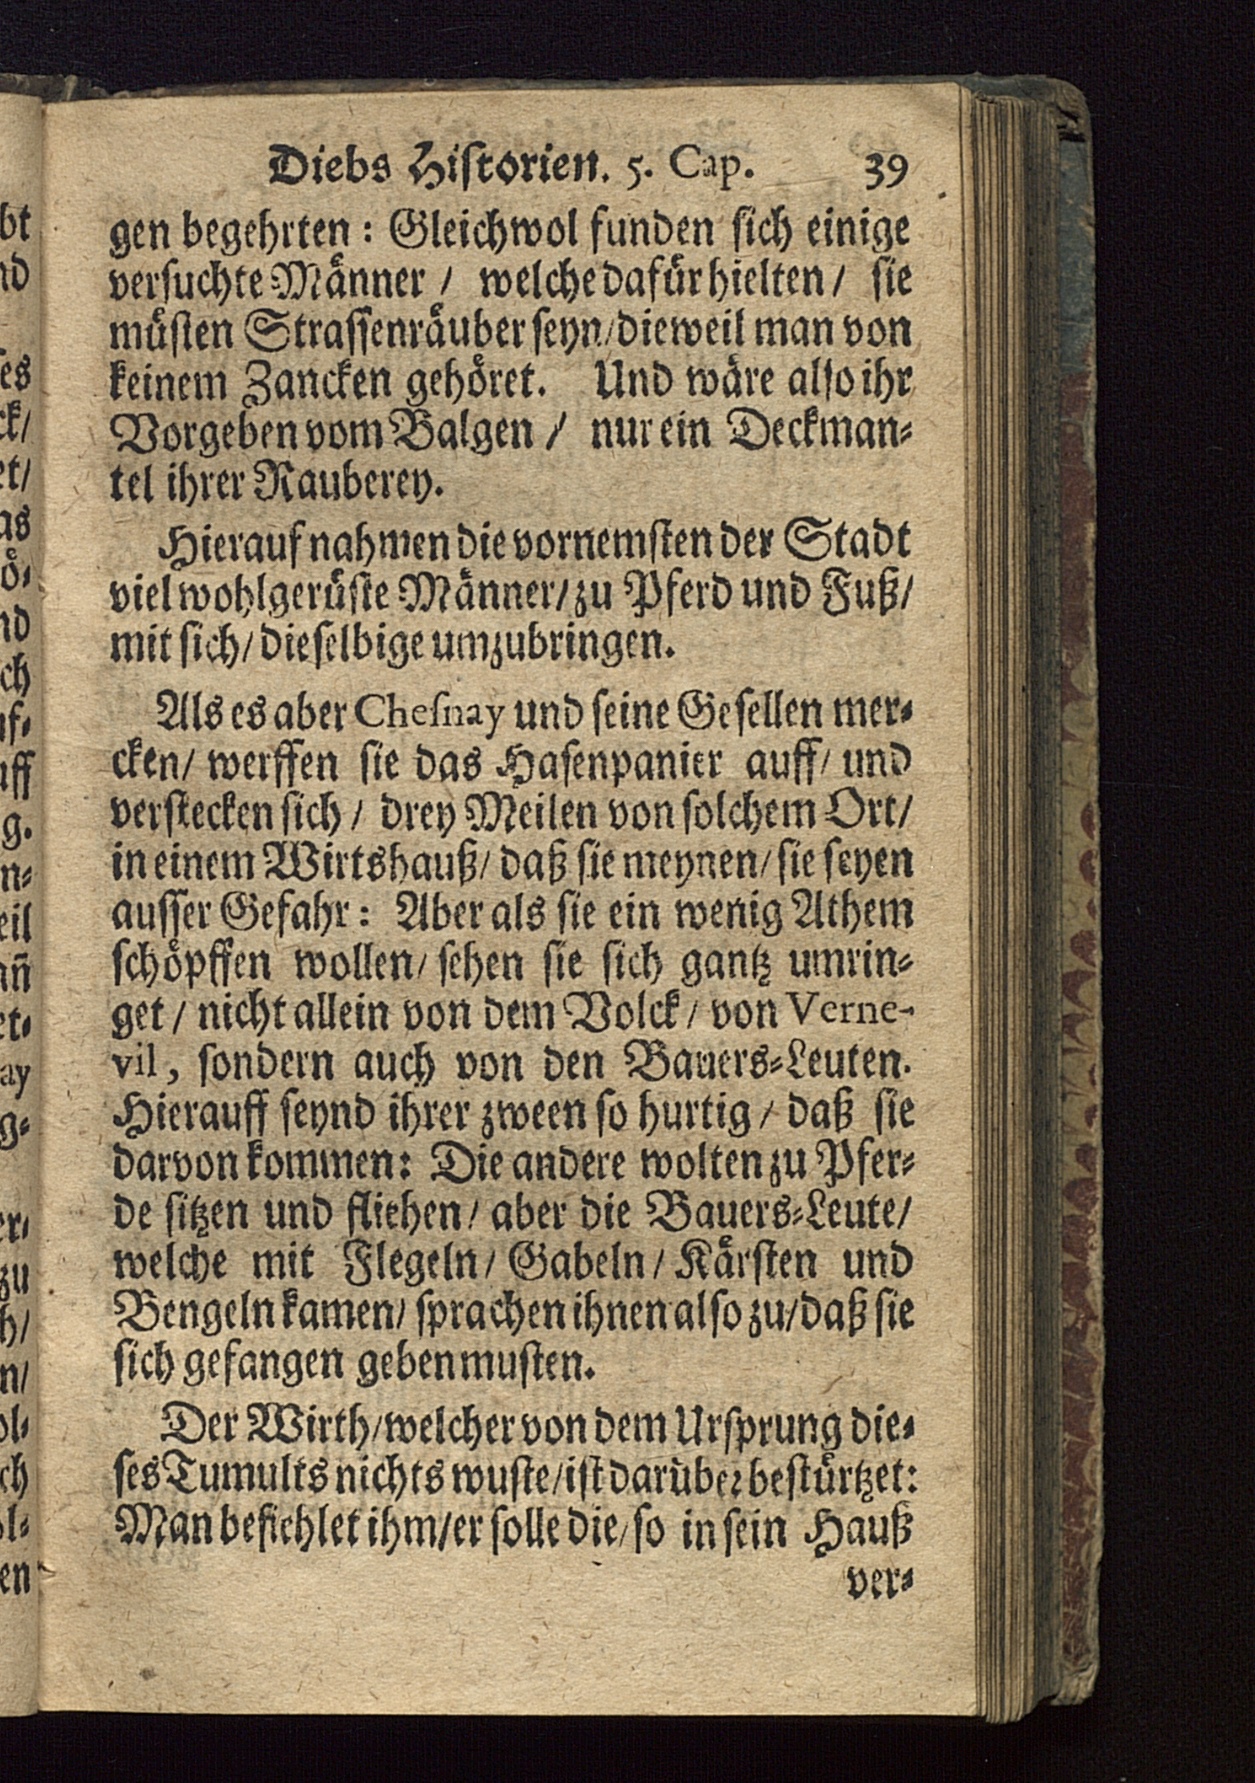 Diebs Historien. 5. Cap. 39
gen begehrten: Gleichwol funden sich einige
versuchte Männer / welche dafür hielten / sie
müsten Strassenräuber seyn / dieweil man von
keinem Zancken gehöret. Und wäre also ihr
Vorgeben vom Balgen / nur ein Deckman-
tel ihrer Rauberey.
Hierauf nahmen die vornemsten der Stadt
viel wohlgerüste Männer / zu Pferd und Fuß /
mit sich / dieselbige umzubringen.
Als es aber Chesnay und seine Gesellen mer-
cken / werffen sie das Hasenpanier auff / und
verstecken sich / drey Meilen von solchem Ort /
in einem Wirtshauß / daß sie meynen / sie seyen
ausser Gefahr: Aber als sie ein wenig Athem
schöpffen wollen / sehen sie sich gantz umrin-
get / nicht allein von dem Volck / von Verne-
vil, sondern auch von den Bauers-Leuten.
Hierauff seynd ihrer zween so hurtig / daß sie
darvon kommen: Die andere wolten zu Pfer-
de sitzen und fliehen / aber die Bauers-Leute /
welche mit Flegeln / Gabeln / Kärsten und
Bengeln kamen / sprachen ihnen also zu / daß sie
sich gefangen geben musten.
Der Wirth / welcher von dem Ursprung die-
ses Tumults nichts wuste / ist darüber bestürtzet:
Man befichlet ihm / er solle die / so in sein Hauß
ver-